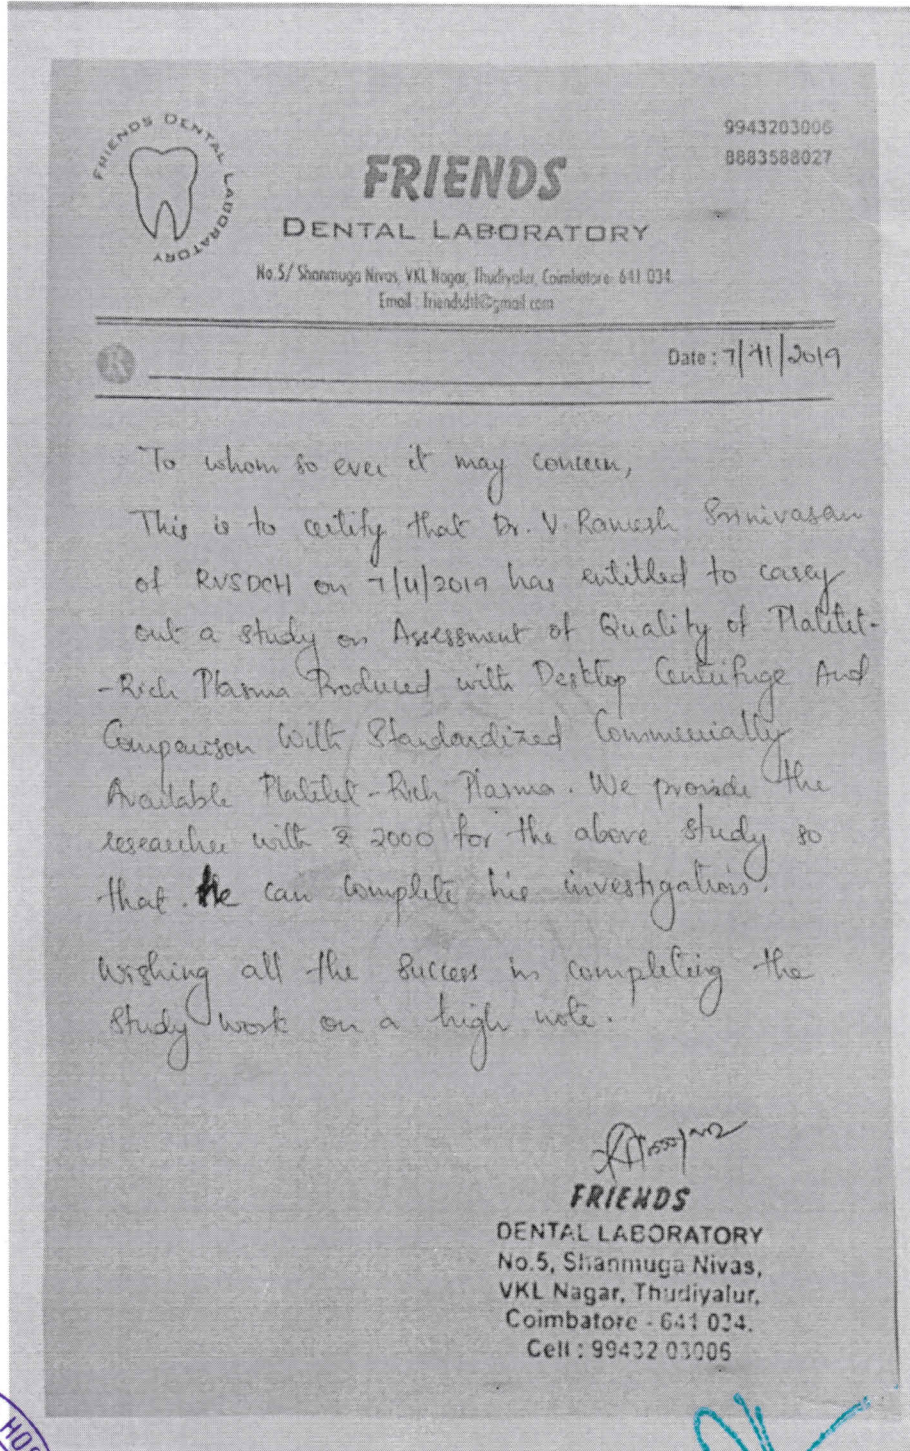 FRIENDS DENTAL LABORATORY
9943203006
8883588027
FRIENDS
DENTAL LABORATORY
No.5/ Shanmuga Nivas, VKL Nagar, Thudiyalur, Coimbatore- 641 034.
Email : friendsdtl@gmail.com
R
Date : 7/11/2019
To whom so ever it may concern,
This is to certify that Dr. V. Ramesh Srinivasan
of RVSDCH on 7/11/2019 has entitled to carry
out a study on Assessment of Quality of Platelet-
-Rich Plasma Produced with Desktop Centrifuge And
Comparison With Standardized Commercially
Available Platelet-Rich Plasma. We provide the
researcher with ₹ 2000 for the above study so
that. He can complete his investigations.
Wishing all the success in completing the
study work on a high note.
FRIENDS
DENTAL LABORATORY
No.5, Shanmuga Nivas,
VKL Nagar, Thudiyalur,
Coimbatore - 641 034.
Cell : 99432 03006